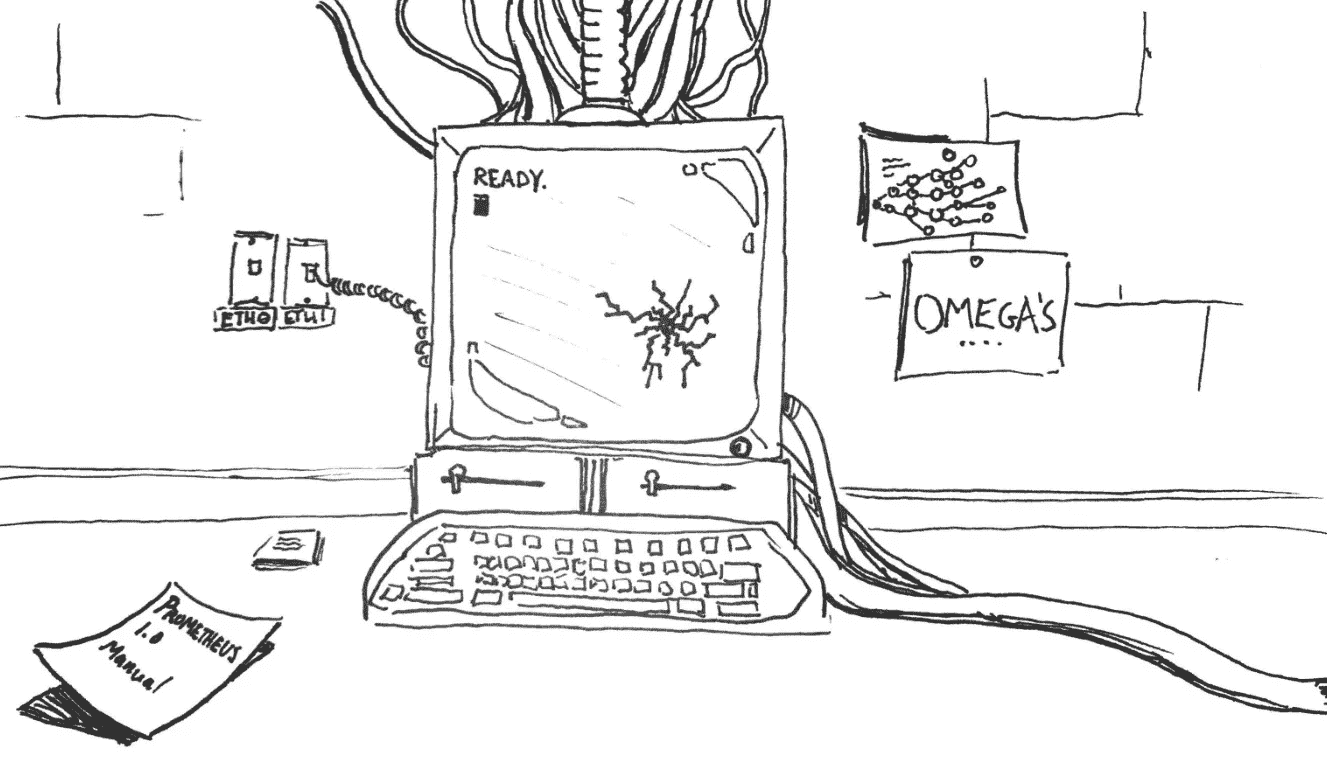 READY.
ETH0 ETH1
OMEGA'S
....
PROMETHEUS
1.0
Manual